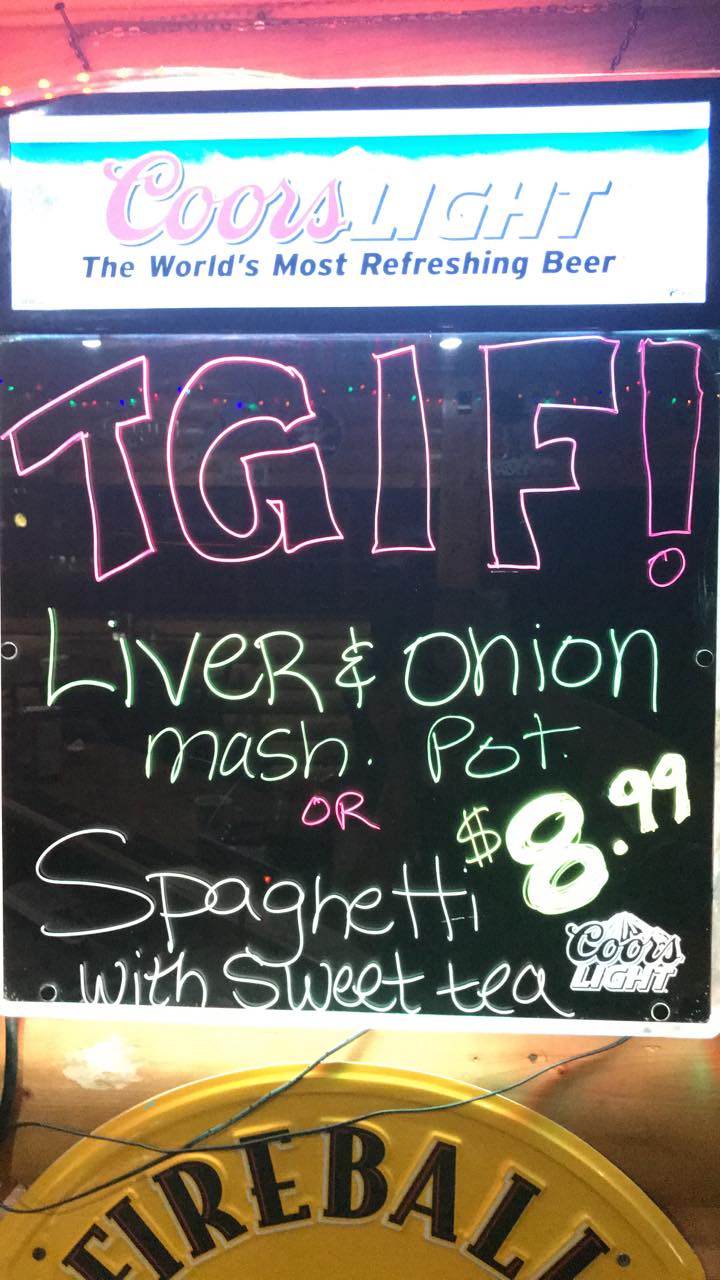 Coors LIGHT
The World's Most Refreshing Beer
TGIF!
LiveR & Onion
mash. Pot.
OR
$8.99
Spaghetti
with Sweet tea
Coors
LIGHT
FIREBALL